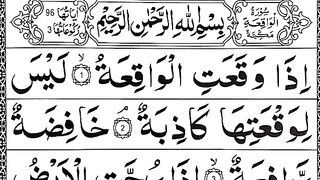 سُوْرَةُ الْوَاقِعَةِ مَكِّيَّةٌ
بِسْمِ اللهِ الرَّحْمٰنِ الرَّحِيْمِ
اٰيَاتُهَا 96
رُكُوْعَاتُهَا 3
اِذَا وَقَعَتِ الْوَاقِعَةُ ۙ ﴿1﴾ لَيْسَ
لِوَقْعَتِهَا كَاذِبَةٌ ۘ ﴿2﴾ خَافِضَةٌ
رَّافِعَةٌ ۙ ﴿3﴾ اِذَا رُجَّتِ الْاَرْضُ